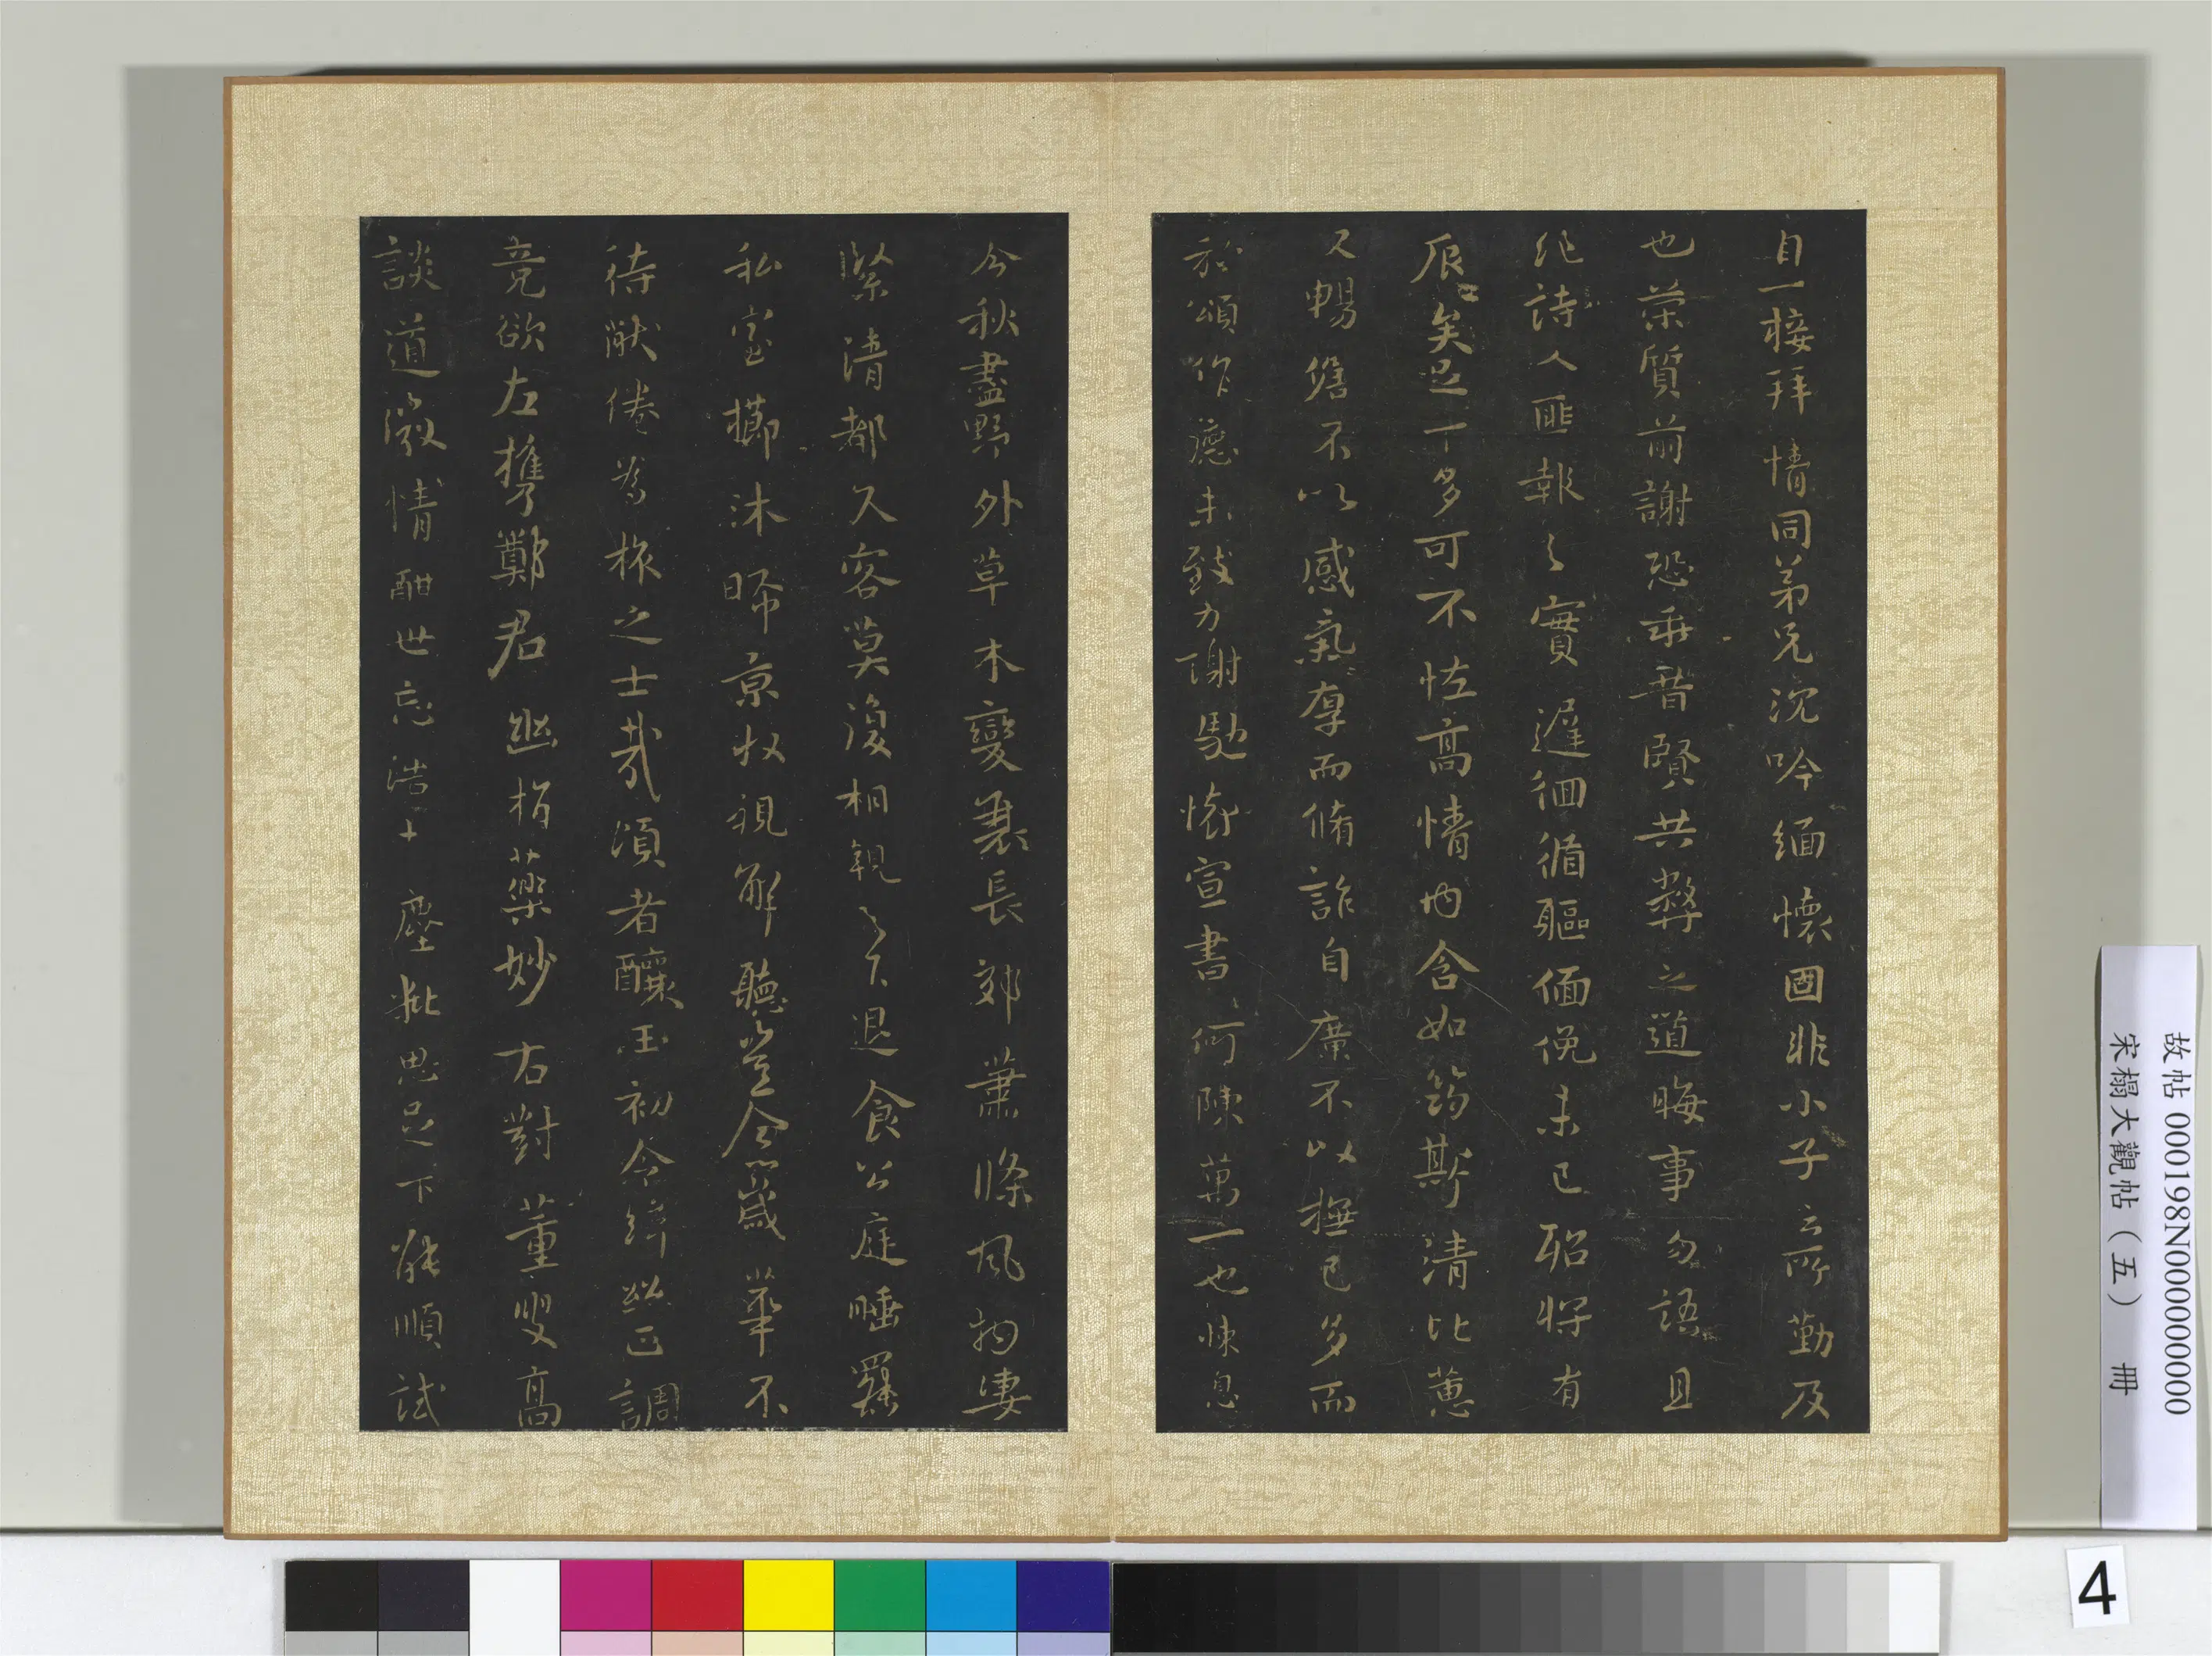 自一接拜情同弟兄沈吟緬懷固非小子之所勤及
也榮質前謝恐乖昔賢共弊之道晦事勿語且
詩人匪報之實遲徊循軀偭俛未已昭將有
矣足下多可不怪高情内含如筠斯清比蕙
又暢儋不以感氣厚而脩詐自廉不以撫己多而
於頌作德未致力謝馳懷宣書何陳萬一也悚息
今秋盡野外草木變衰長郊蕭條風物淒
緊清都久客莫復相親之下退食公庭睡羅
私室櫛沐晞京收視解聽豈令歲華不
待猒倦為旅之士哉頃者釀玉初令絳正調
竟欲左攜鄭君幽指藥妙右對董叟高
談道微情酣世忘浩十塵粃思足下能順試
故帖 000198N000000000
宋榻大觀帖（五） 冊
4